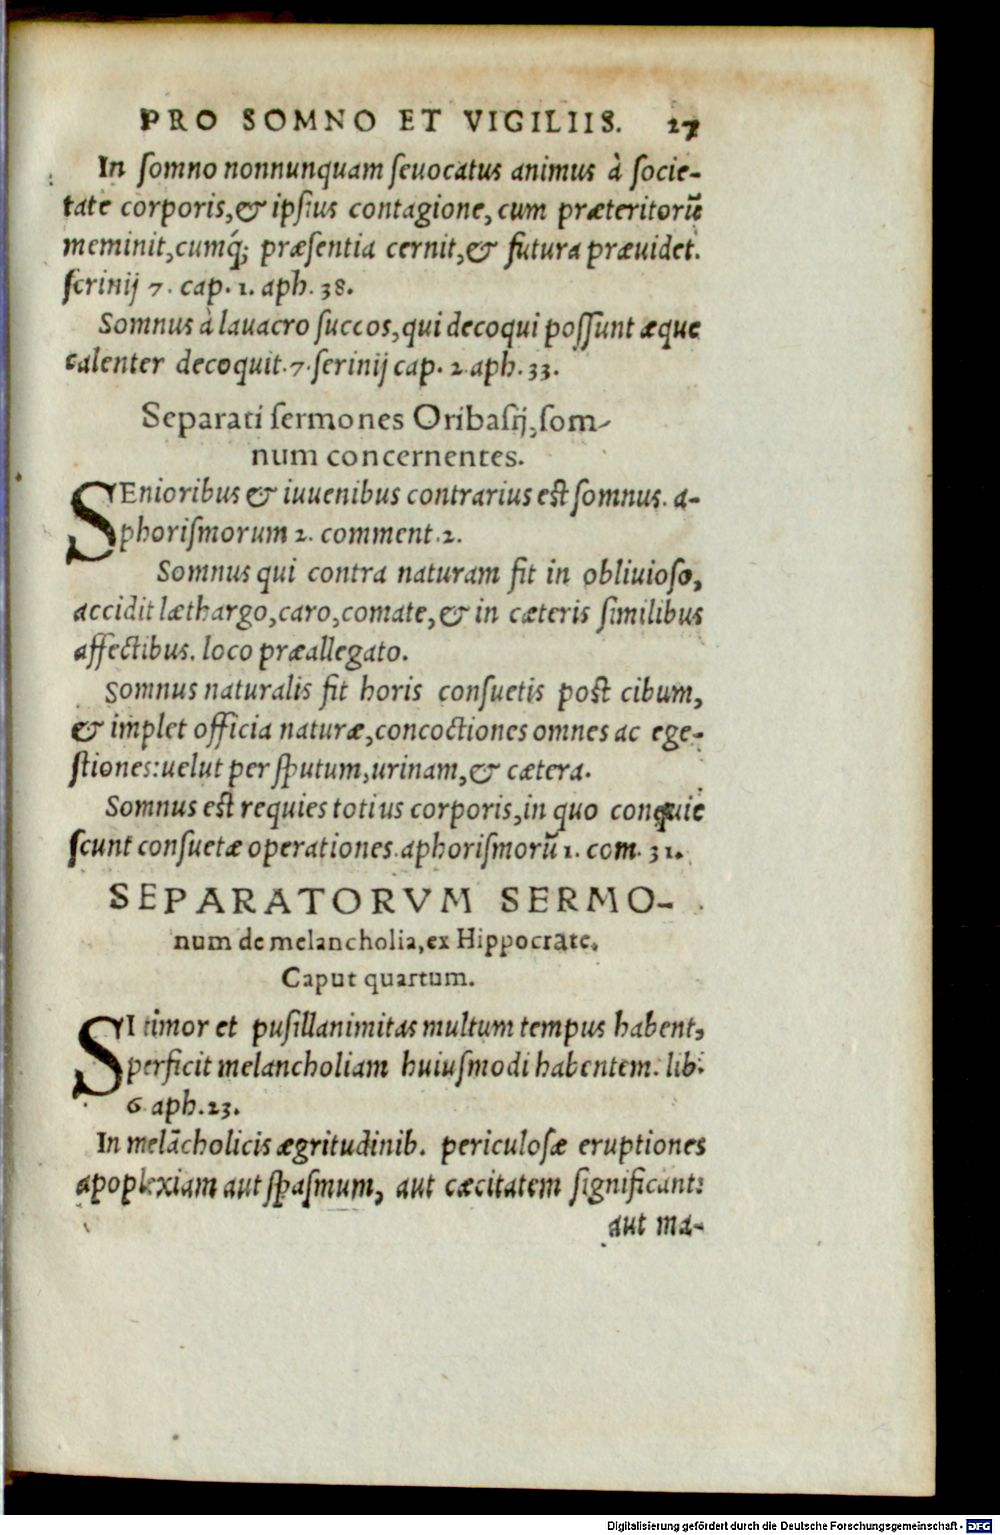 PRO SOMNO ET VIGILIIS. 27
In ſomno nonnunquam ſeuocatus animus à ſocie-
tate corporis,& ipſius contagione, cum præteritorū
meminit,cumq́; præſentia cernit,& futura præuidet.
ſerinij 7. cap. 1. aph. 38.
Somnus à lauacro ſuccos,qui decoqui poſſunt æque
calenter decoquit. 7. ſerinij cap. 2 aph. 33.
Separati ſermones Oribaſij,ſom-
num concernentes.
SEnioribus & iuuenibus contrarius eſt ſomnus. a-
phoriſmorum 2. comment.2.
Somnus qui contra naturam fit in obliuioſo,
accidit læthargo,caro,comate,& in cæteris ſimilibus
affectibus. loco præallegato.
Somnus naturalis fit horis conſuetis poſt cibum,
& implet officia naturæ,concoctiones omnes ac ege-
ſtiones:uelut per ſputum,urinam,& cætera.
Somnus eſt requies totius corporis,in quo conquie
ſcunt conſuetæ operationes.aphoriſmorū 1. com. 31.
SEPARATORVM SERMO-
num de melancholia,ex Hippocrate.
Caput quartum.
SI timor et puſillanimitas multum tempus habent,
perficit melancholiam huiuſmodi habentem. lib.
6 aph.23.
In melācholicis ægritudinib. periculoſæ eruptiones
apoplexiam aut ſpaſmum, aut cæcitatem ſignificant:
aut ma-
Digitalisierung gefördert durch die Deutsche Forschungsgemeinschaft - DFG